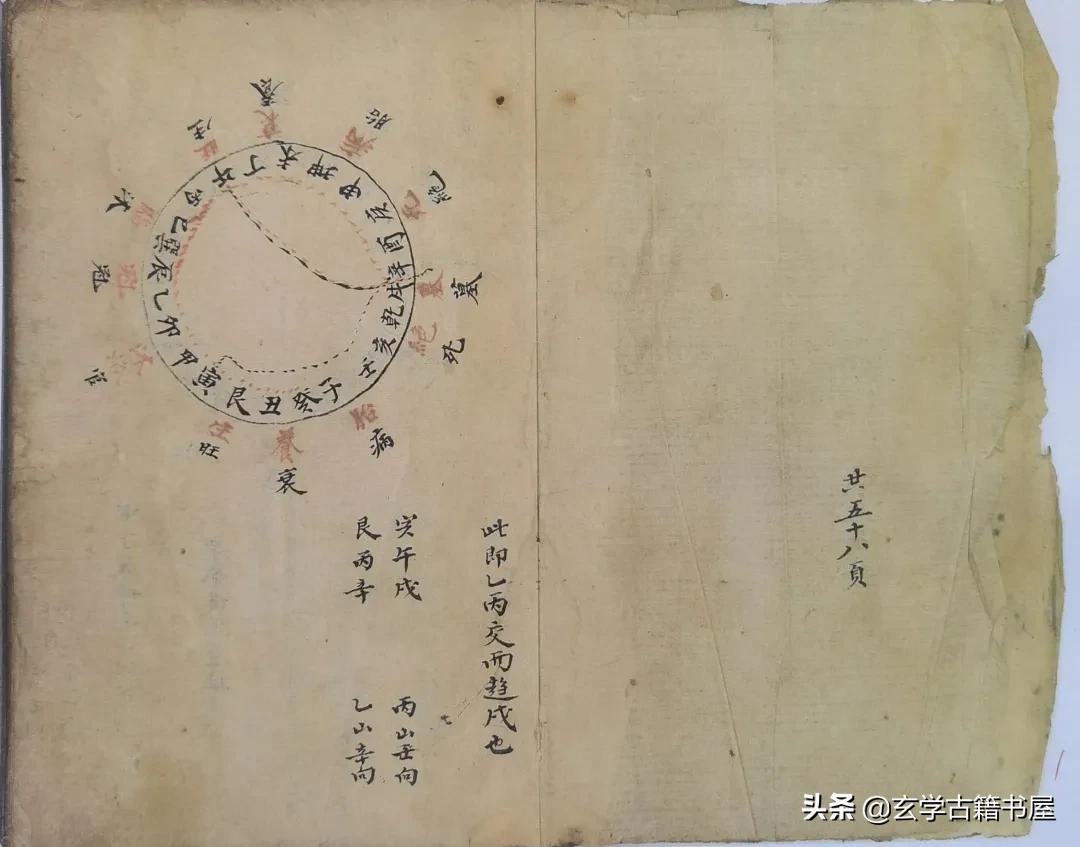 共五十八頁
此即乙丙交而趋戌也
寅午戌
丙山壬向
艮丙辛
乙山辛向
午丁未坤申庚酉辛戌乾亥壬子癸丑艮寅甲卯乙辰巽巳丙
生
養
胎
絕
墓
死
病
衰
旺
官
冠
沐
旺
衰
病
墓
絕
胎
養
生
冠
头条 @玄学古籍书屋